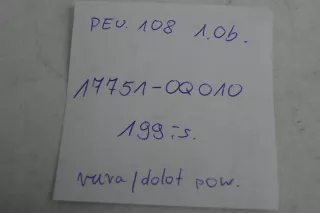 PEU. 108 1.0b.
17751-0Q010
199:-s.
rura/dolot pow.